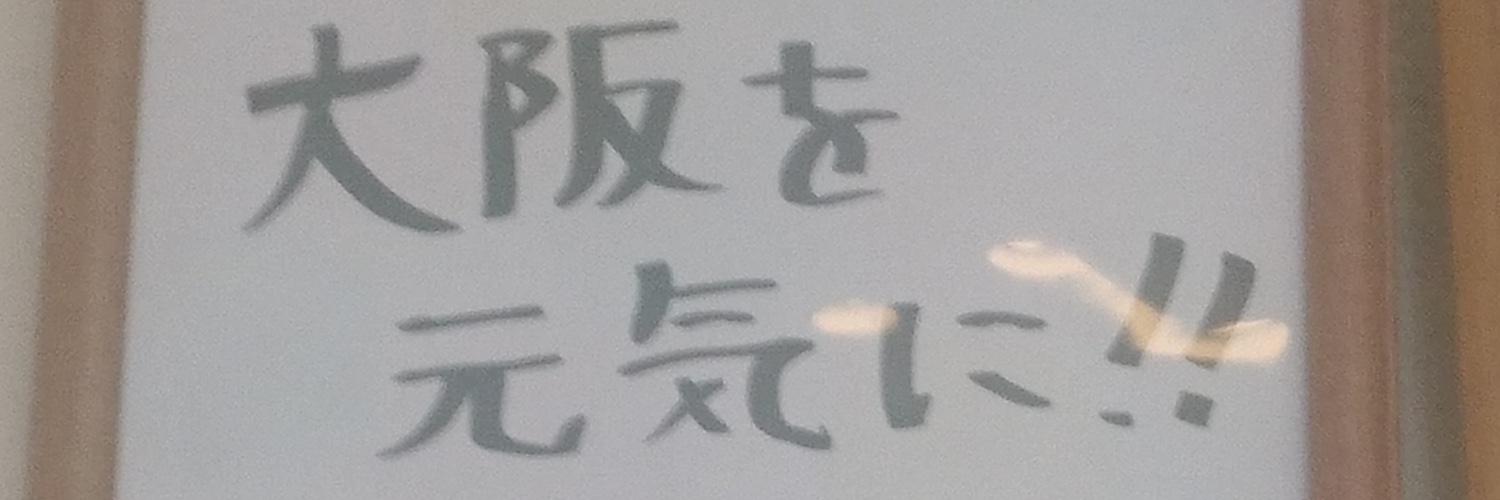 大阪を
元気に!!